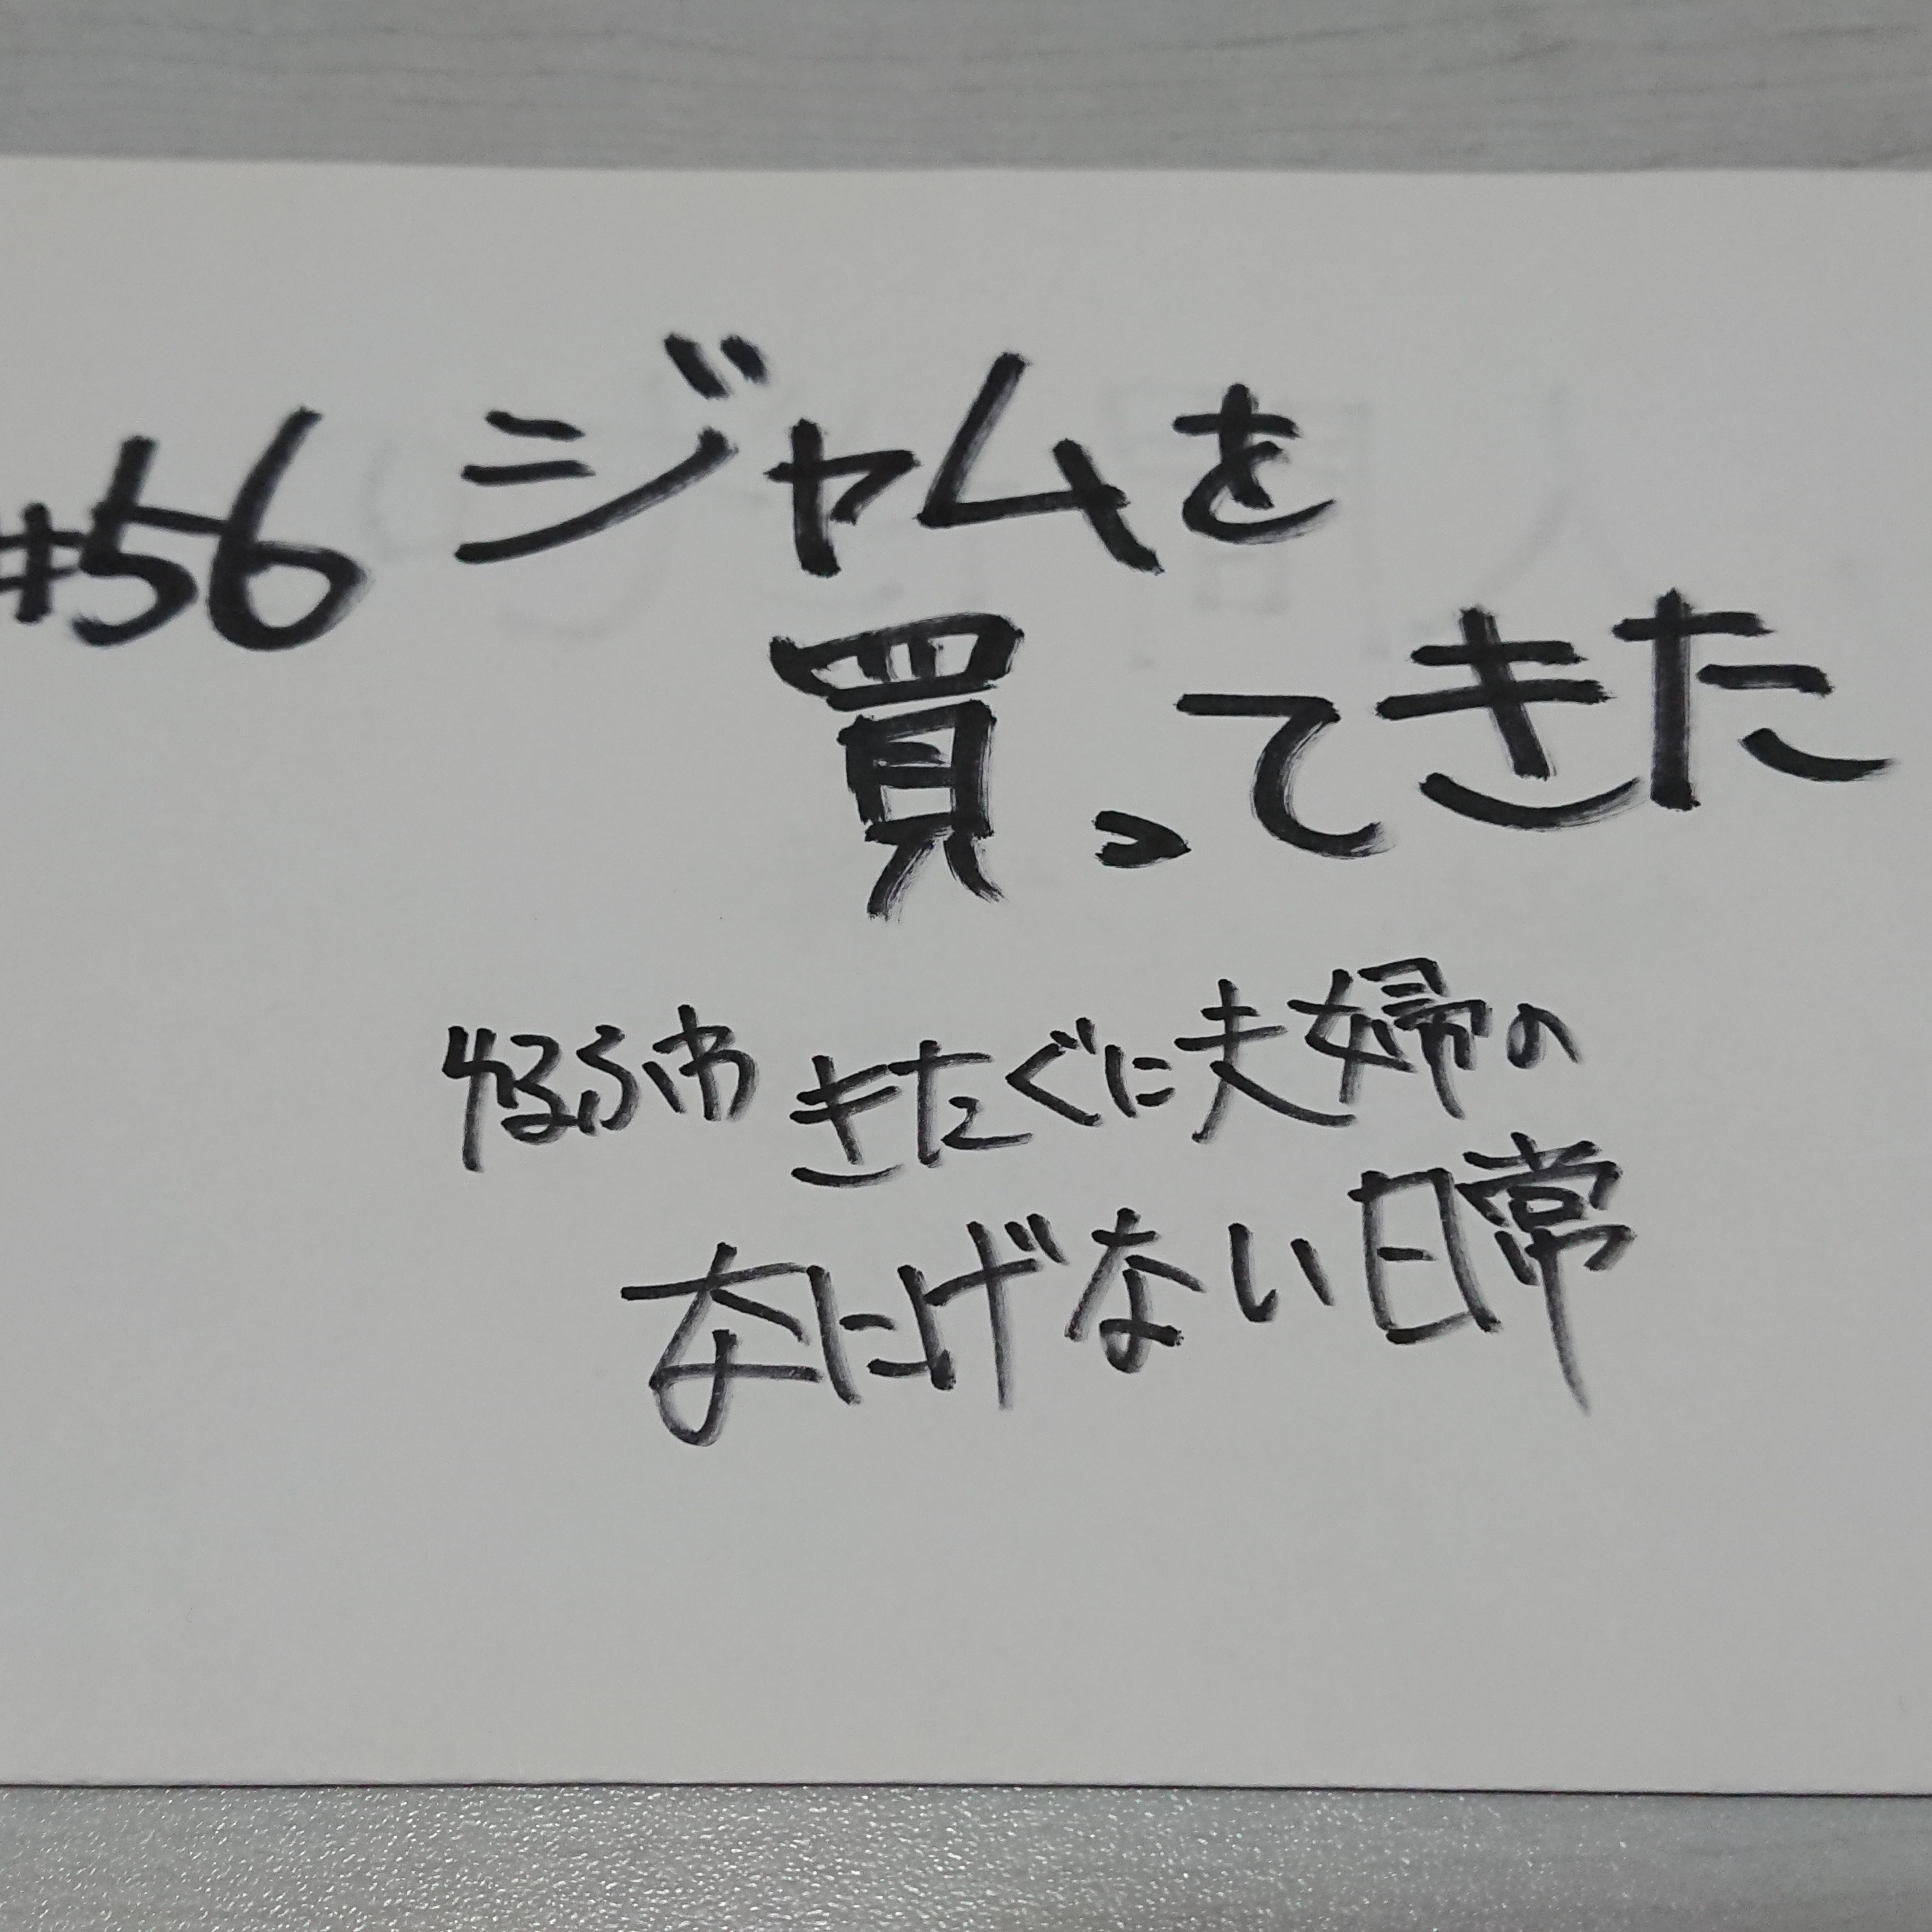 #56 ジャムを
買ってきた
ゆるふわ きたぐに夫婦の
なにげない日常